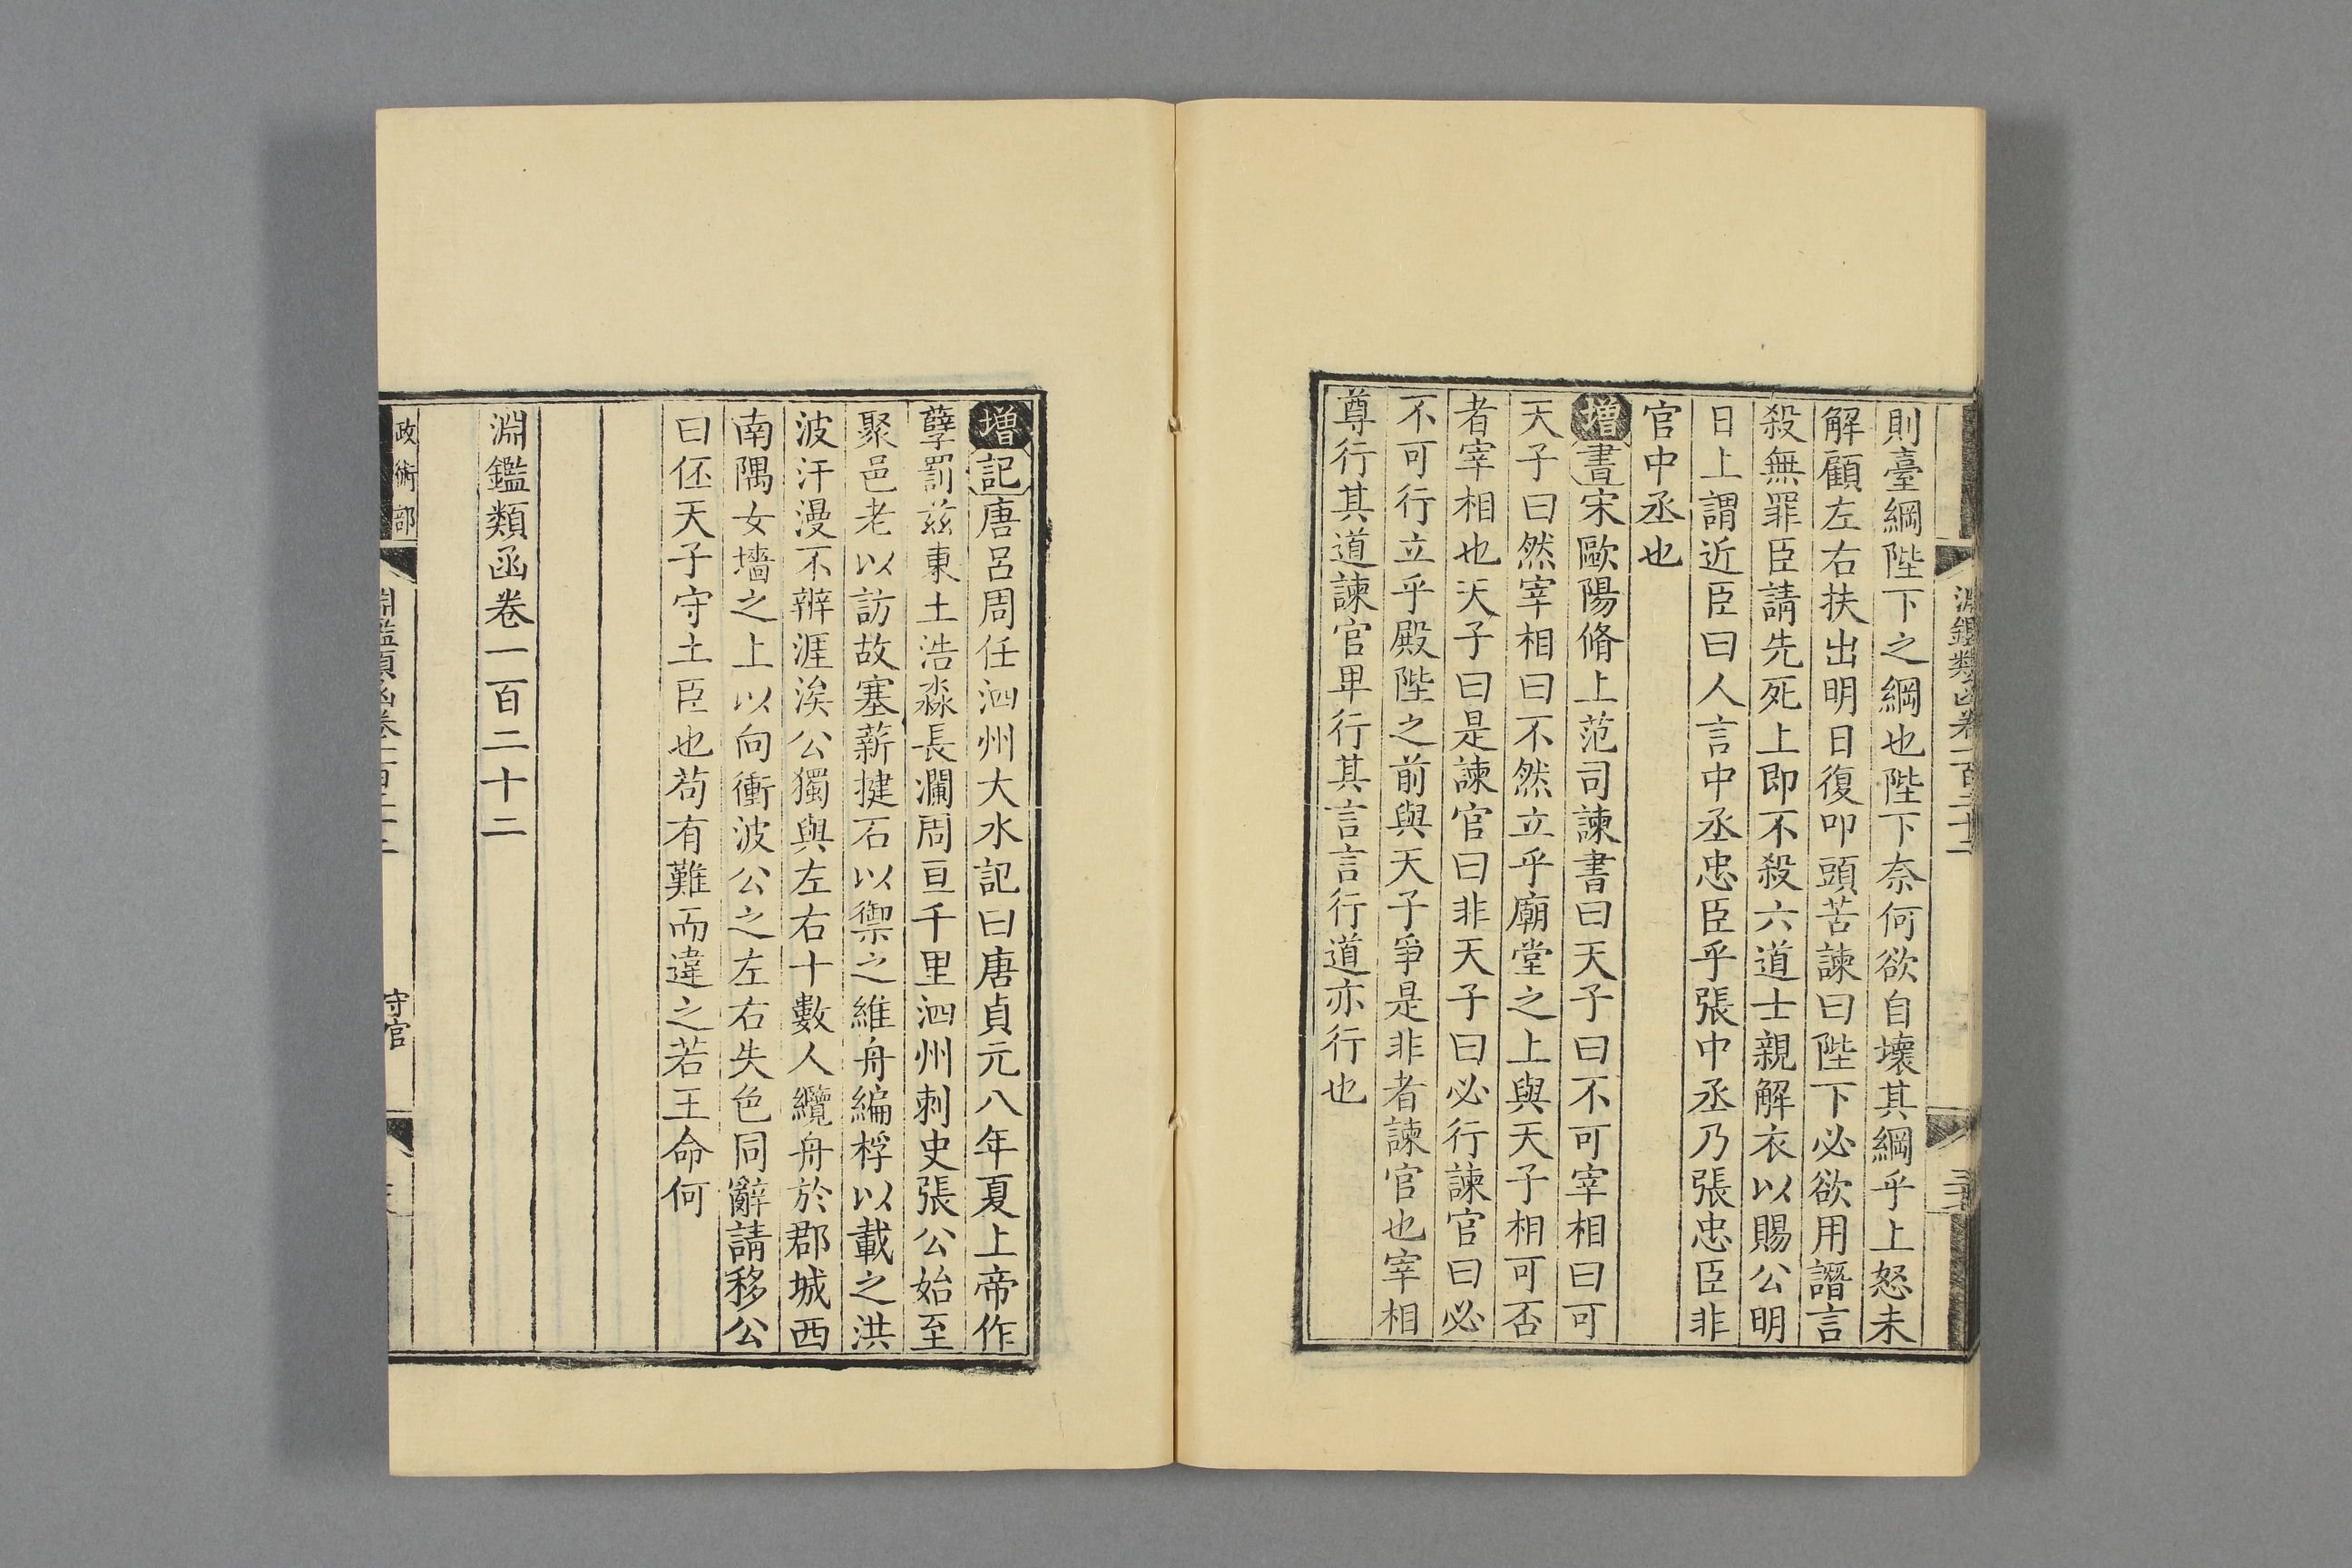 淵鑑類函卷一百二十二
則臺綱陛下之綱也陛下奈何欲自壞其綱乎上怒未
解顧左右扶出明日復叩頭苦諫曰陛下必欲用譖言
殺無罪臣請先死上即不殺六道士親解衣以賜公明
日上謂近臣曰人言中丞忠臣乎張中丞乃張忠臣非
官中丞也
增書宋歐陽脩上范司諫書曰天子曰不可宰相曰可
天子曰然宰相曰不然立乎廟堂之上與天子相可否
者宰相也天子曰是諫官曰非天子曰必行諫官曰必
不可行立乎殿陛之前與天子爭是非者諫官也宰相
尊行其道諫官卑行其言言行道亦行也
增記唐呂周任泗州大水記曰唐貞元八年夏上帝作
孽罰兹東土浩淼長瀾周亘千里泗州刺史張公始至
聚邑老以訪故塞薪揵石以禦之維舟編桴以載之洪
波汗漫不辨涯涘公獨與左右十數人纜舟於郡城西
南隅女墻之上以向衝波公之左右失色同辭請移公
曰伾天子守土臣也苟有難而違之若王命何
淵鑑類函卷一百二十二
政術部
淵鑑類函卷一百二十二
守官